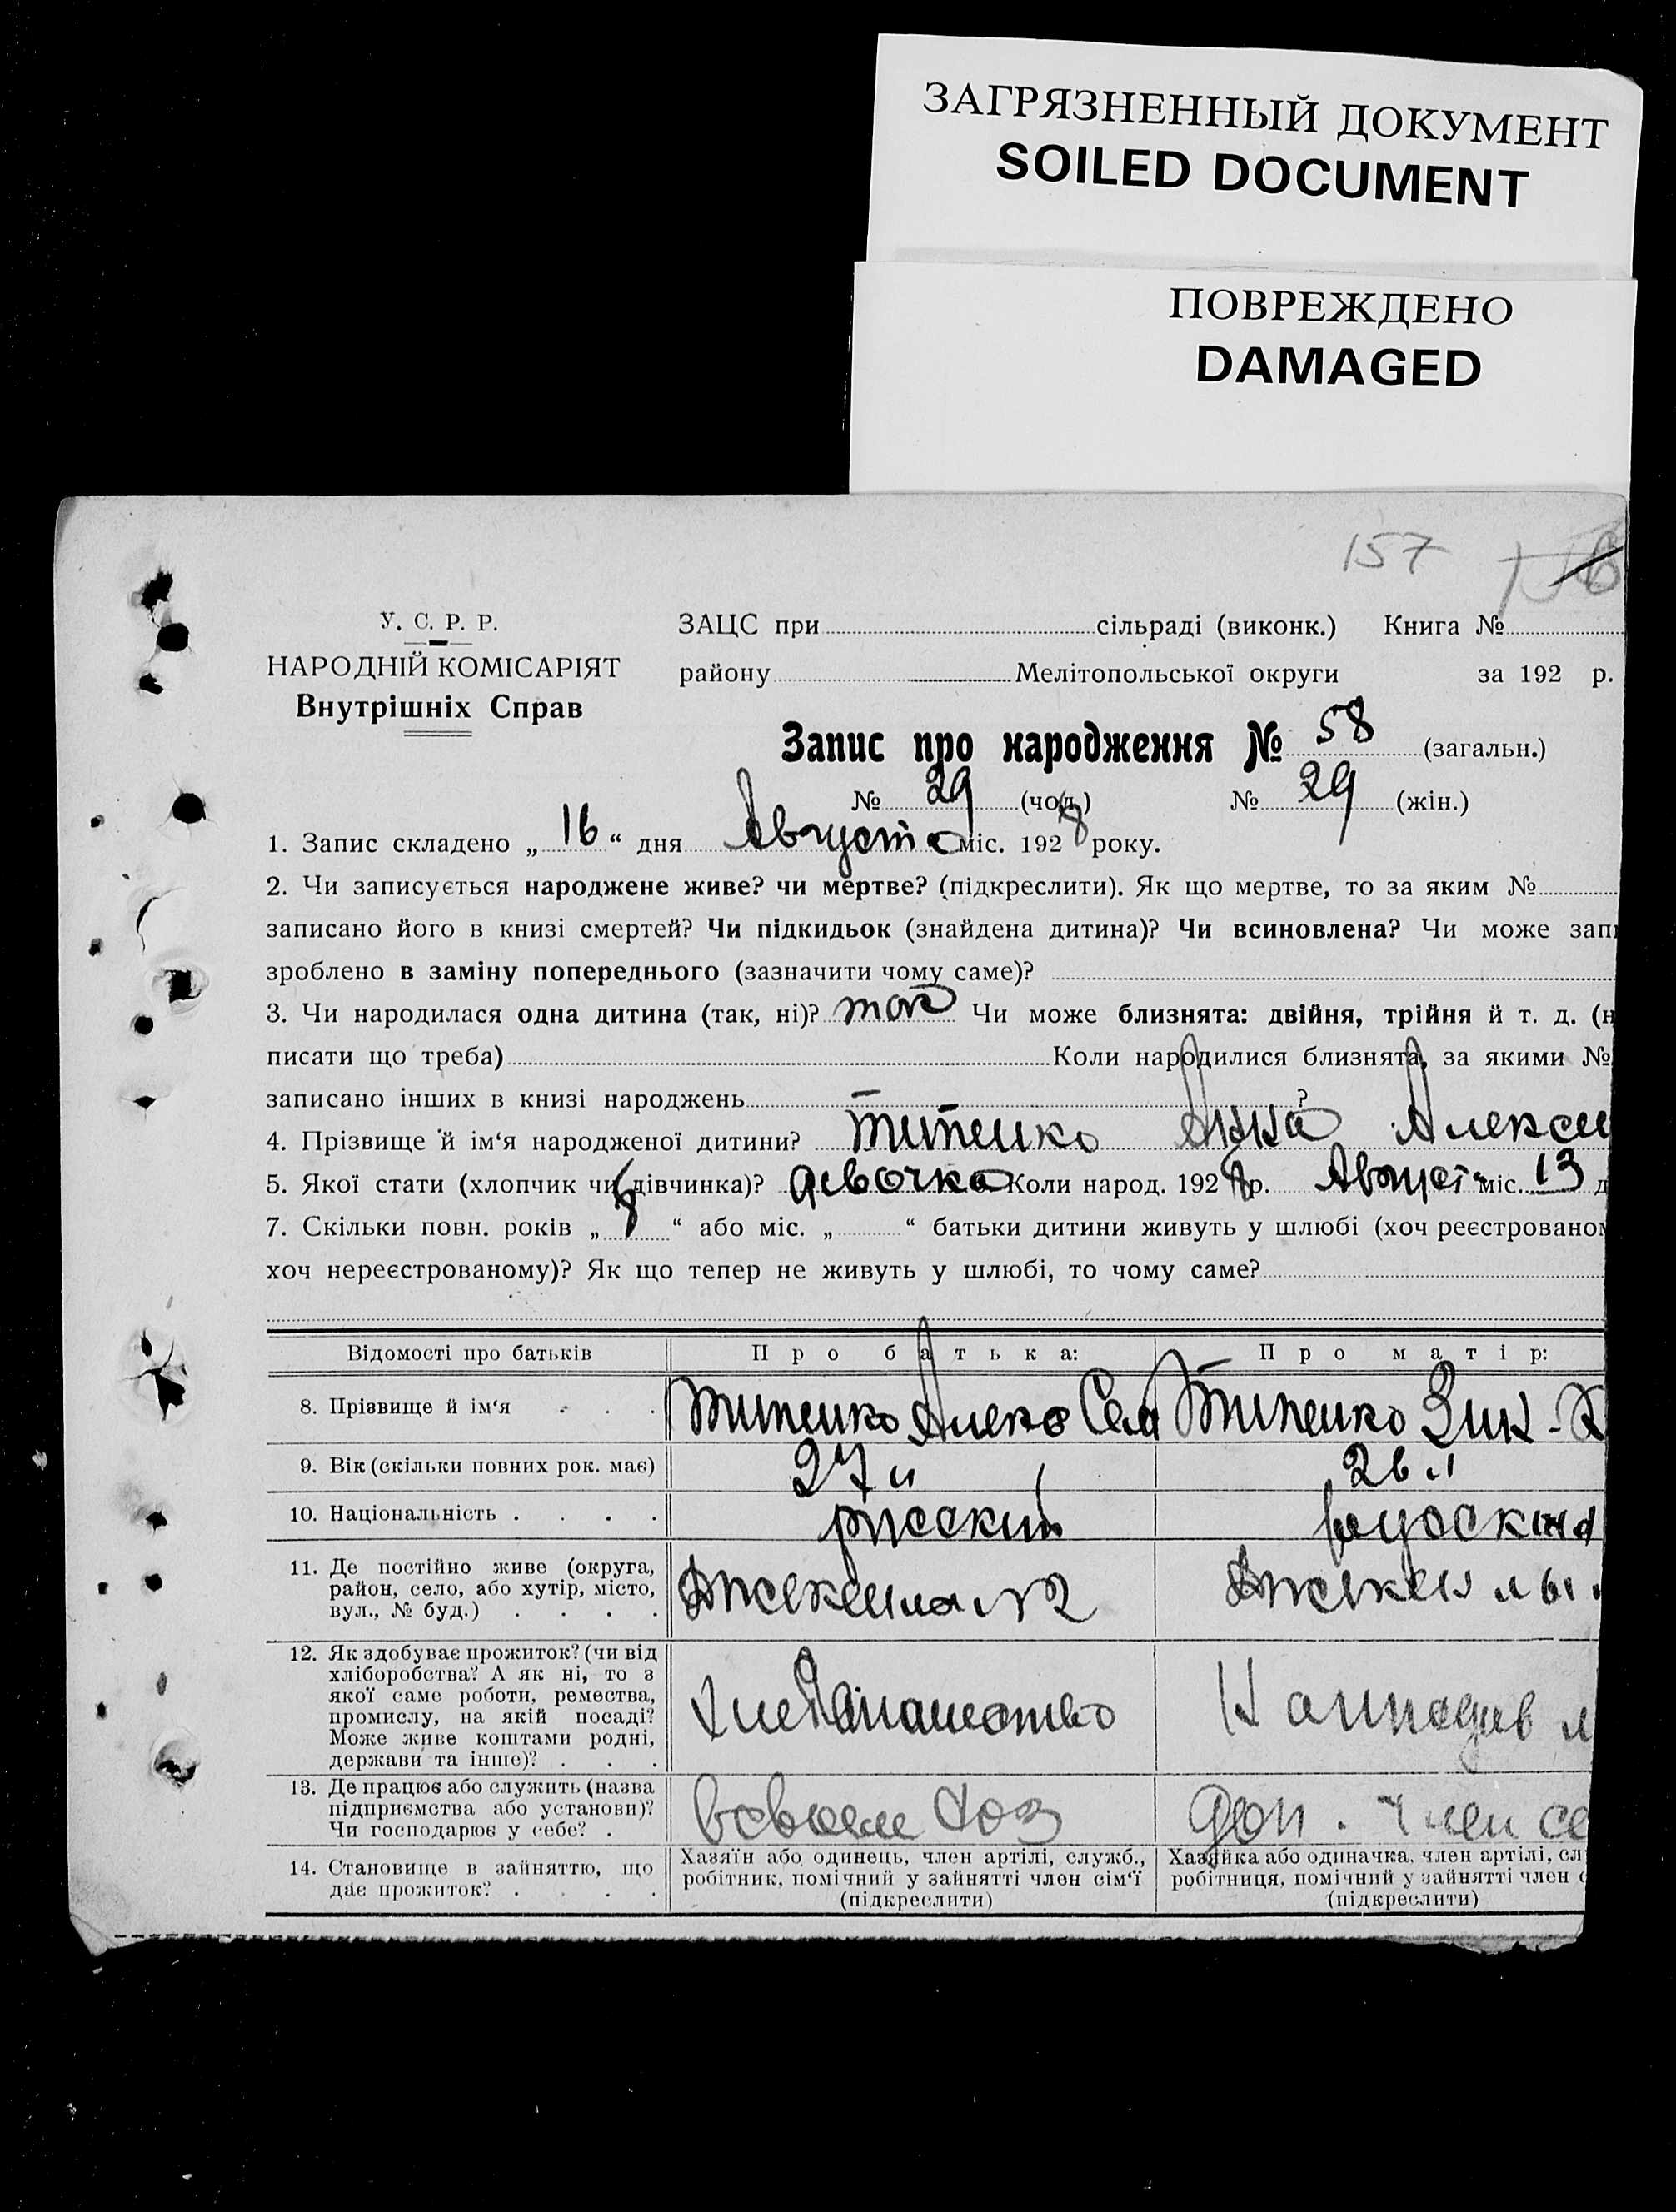 ЗАГРЯЗНЕННЫЙ ДОКУМЕНТ
SOILED DOCUMENT
ПОВРЕЖДЕНО
DAMAGED
157
У. С. Р. Р.
НАРОДНІЙ КОМІСАРІЯТ
Внутрішніх Справ
ЗАЦС при сільраді (виконк.) Книга №
району Мелітопольської округи за 192 р.
Запис про народження № 58 (загальн.)
№ 29 (чол.) № 29 (жін.)
1. Запис складено „ 16 “ дня Августа міс. 1928 року.
2. Чи записується народжене живе? чи мертве? (підкреслити). Як що мертве, то за яким №
записано його в книзі смертей? Чи підкидьок (знайдена дитина)? Чи всиновлена? Чи може зап
зроблено в заміну попереднього (зазначити чому саме)?
3. Чи народилася одна дитина (так, ні)? так Чи може близнята: двійня, трійня й т. д. (н
писати що треба) Коли народилися близнята, за якими №
записано інших в книзі народжень ?
4. Прізвище й ім‘я народженої дитини? Титенко Анна Алексе
5. Якої стати (хлопчик чи дівчинка)? девочка Коли народ. 1928 р. Август міс. 13 д
7. Скільки повн. років „ “ або міс. „ “ батьки дитини живуть у шлюбі (хоч реєстрованом
хоч нереєстрованому)? Як що тепер не живуть у шлюбі, то чому саме?
Відомості про батьків Про батька: Про матір:
8. Прізвище й ім‘я Титенко Алекс Сем Титенко Зин
9. Вік (скільки повних рок. має) 27 л 26 л
10. Національність русский русскиня
11. Де постійно живе (округа,
район, село, або хутір, місто,
вул., № буд.)
№ 2
12. Як здобуває прожиток? (чи від
хліборобства? А як ні, то з
якої саме роботи, ремества,
промислу, на якій посаді?
Може живе коштами родні,
держави та інше)?
хлебопашество
13. Де працює або служить (назва
підприємства або установи)?
Чи господарює у себе?
всвоем хоз
доп. член се
14. Становище в зайняттю, що
дає прожиток?
Хазяїн або одинець, член артілі, служб.,
робітник, помічний у зайнятті член сім‘ї
(підкреслити)
Хазяйка або одиначка, член артілі, сл
робітниця, помічний у зайнятті член с
(підкреслити)